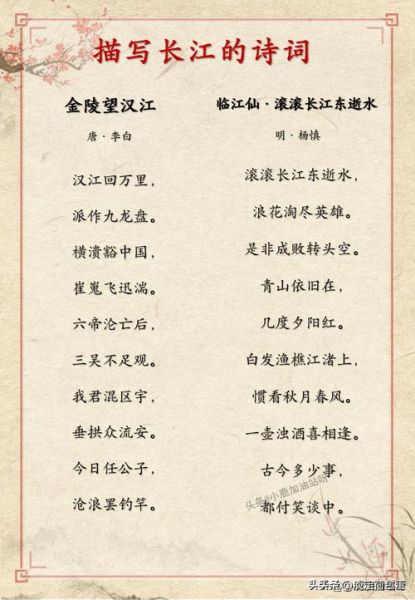 描写长江的诗词
金陵望汉江
唐·李白
汉江回万里，
派作九龙盘。
横溃豁中国，
崔嵬飞迅湍。
六帝沦亡后，
三吴不足观。
我君混区宇，
垂拱众流安。
今日任公子，
沧浪罢钓竿。
临江仙·滚滚长江东逝水
明·杨慎
滚滚长江东逝水，
浪花淘尽英雄。
是非成败转头空。
青山依旧在，
几度夕阳红。
白发渔樵江渚上，
惯看秋月春风。
一壶浊酒喜相逢。
古今多少事，
都付笑谈中。
头条@小鹿加油站
头条@